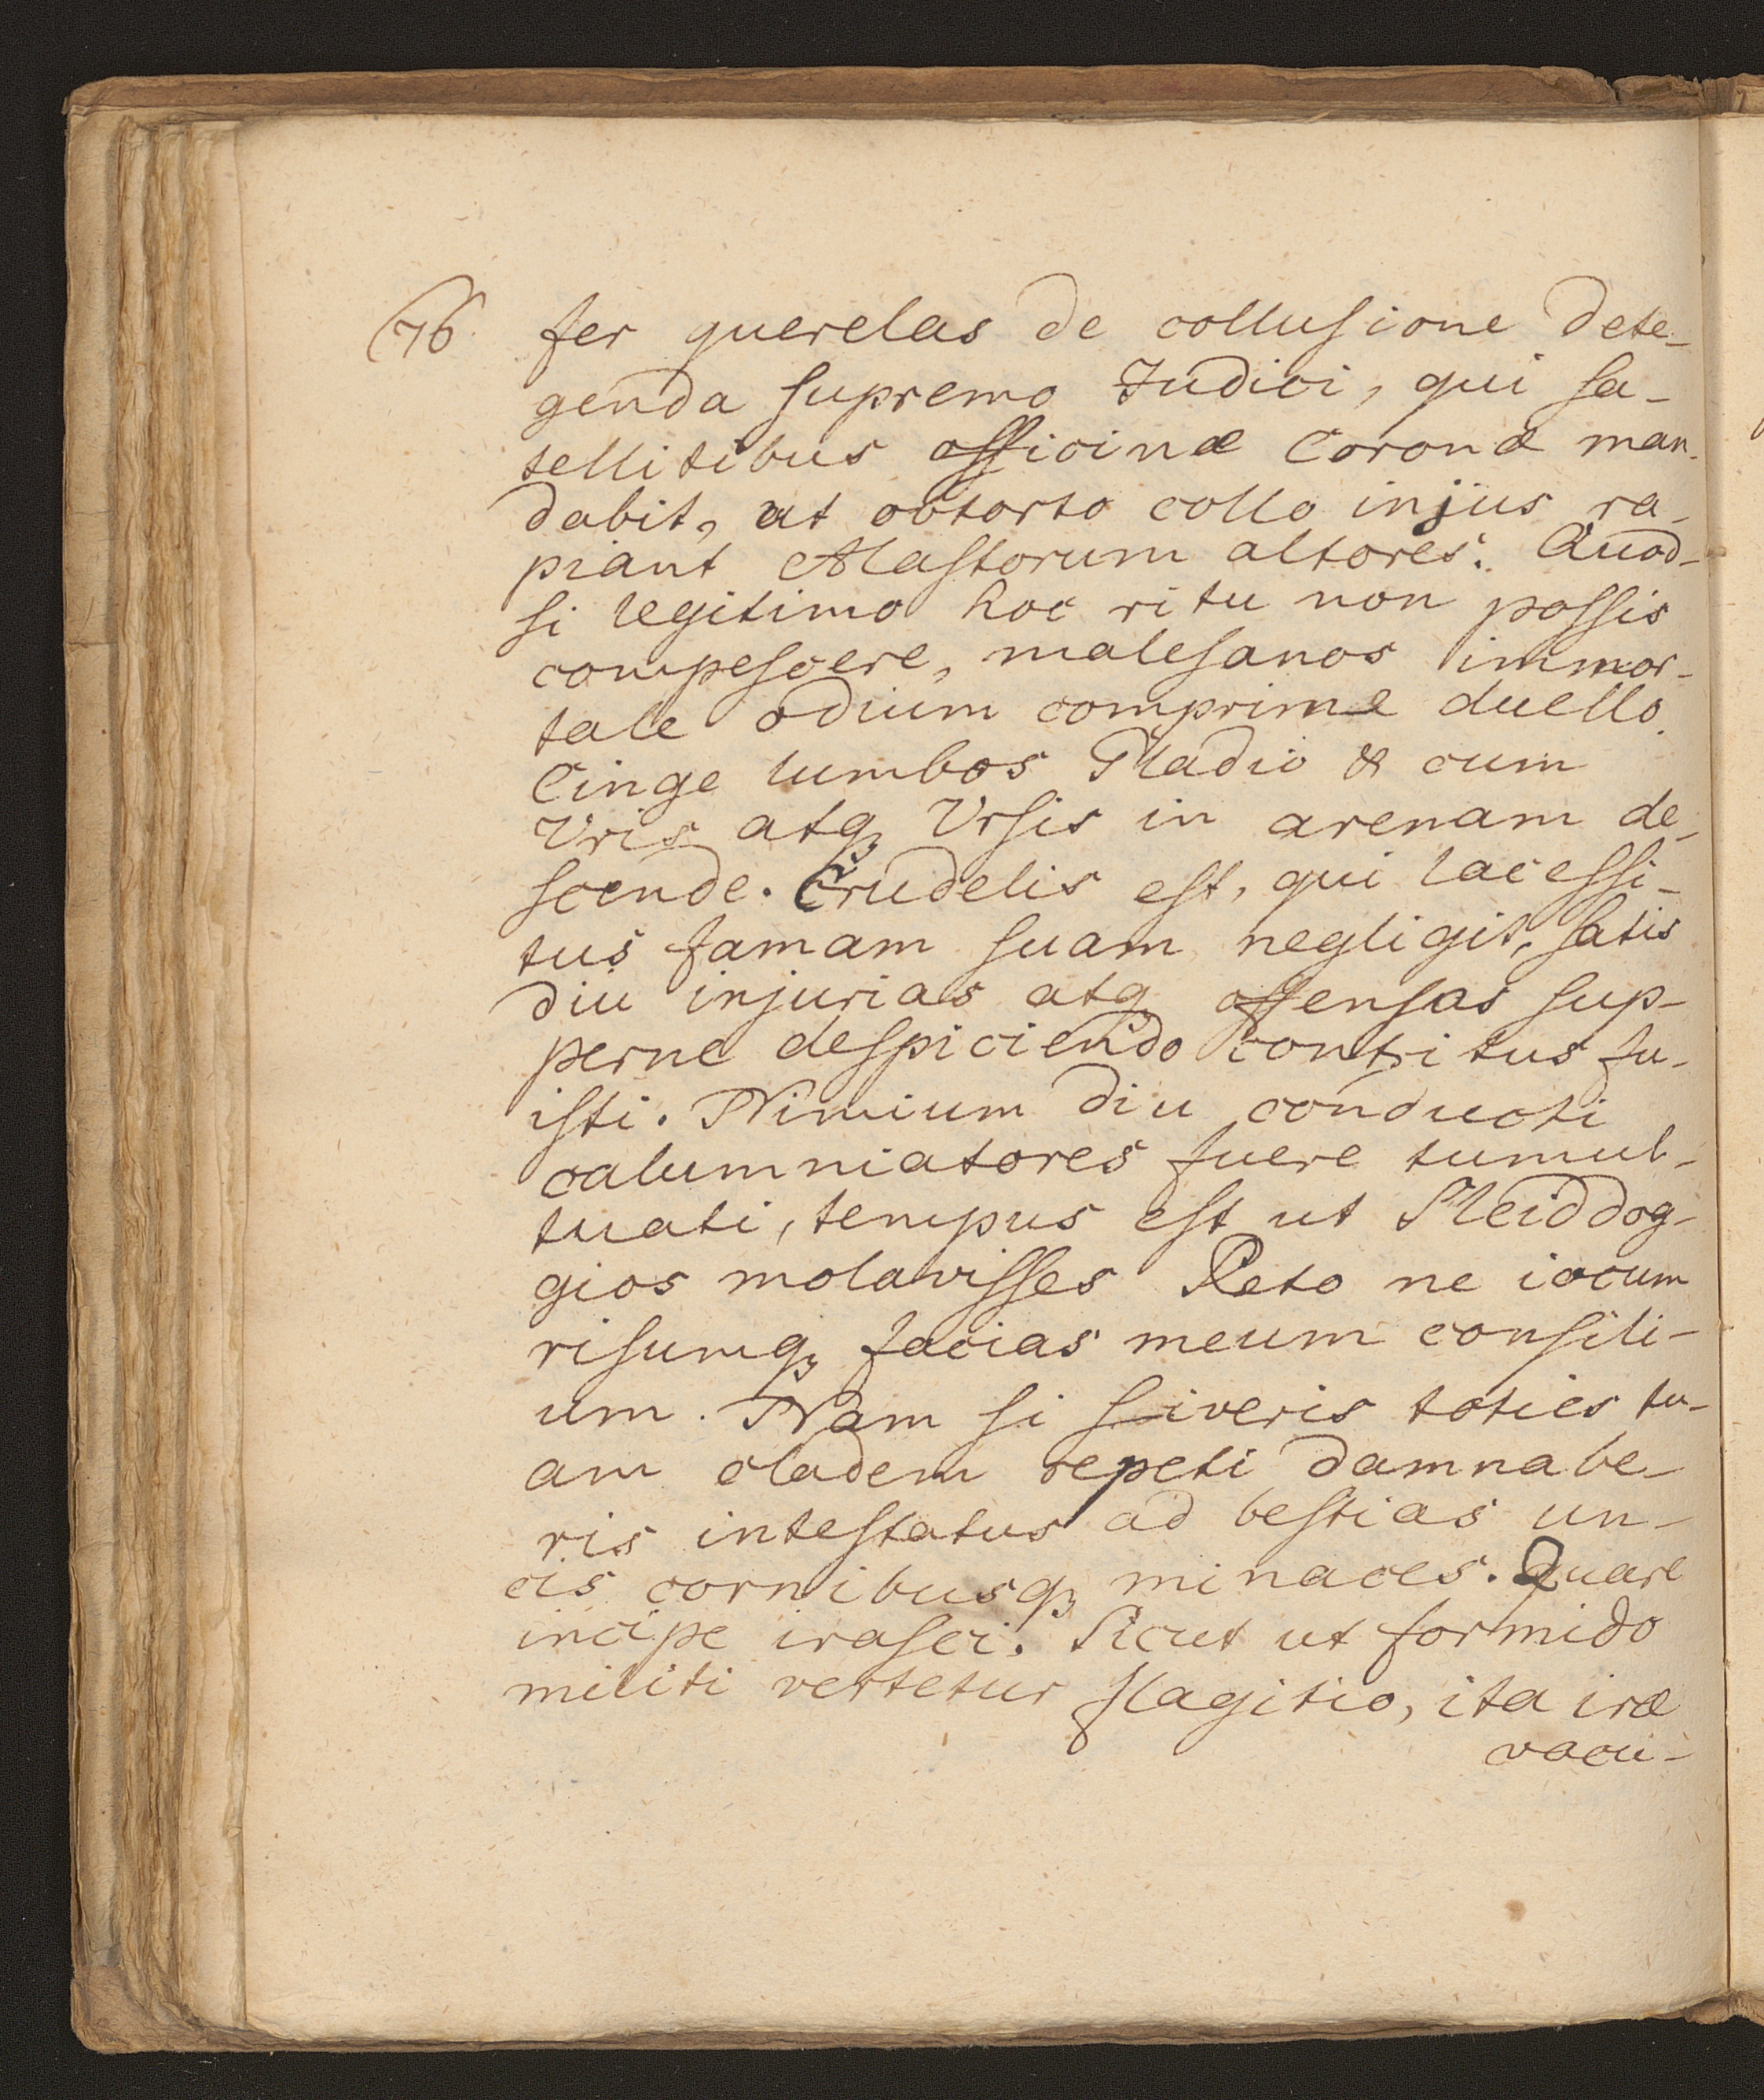 76 fer querelas de collusione dete-
genda supremo Judici, qui sa-
tellitibus officinæ Coronæ man-
dabit, ut obtorto collo injus ra-
piant Mastorum altores. Quod-
si legitimo hoc ritu non possis
compescere, malesanos immor-
tale odium comprime duello.
Cinge lumbos Gladio & cum
Vris atq Vrsis in arenam de-
scende. Crudelis est, qui lacessi-
tus famam suam negligit, satis
diu injurias atq offensas sup-
perne despiciendo contritus fu-
isti. Nimium diu conducti
calumniatores fuere tumul-
tuati, tempus est ut Sleiddog-
gios molavisses Peto ne iocum
risumq facias meum consili-
um. Nam si siveris toties tu-
am cladem repeti damnabe-
ris intestatus ad bestias un-
cis cornibusq minaces. Quare
incipe irasci. Sicut ut formido
militi vertetur flagitio, ita iræ
vacu-